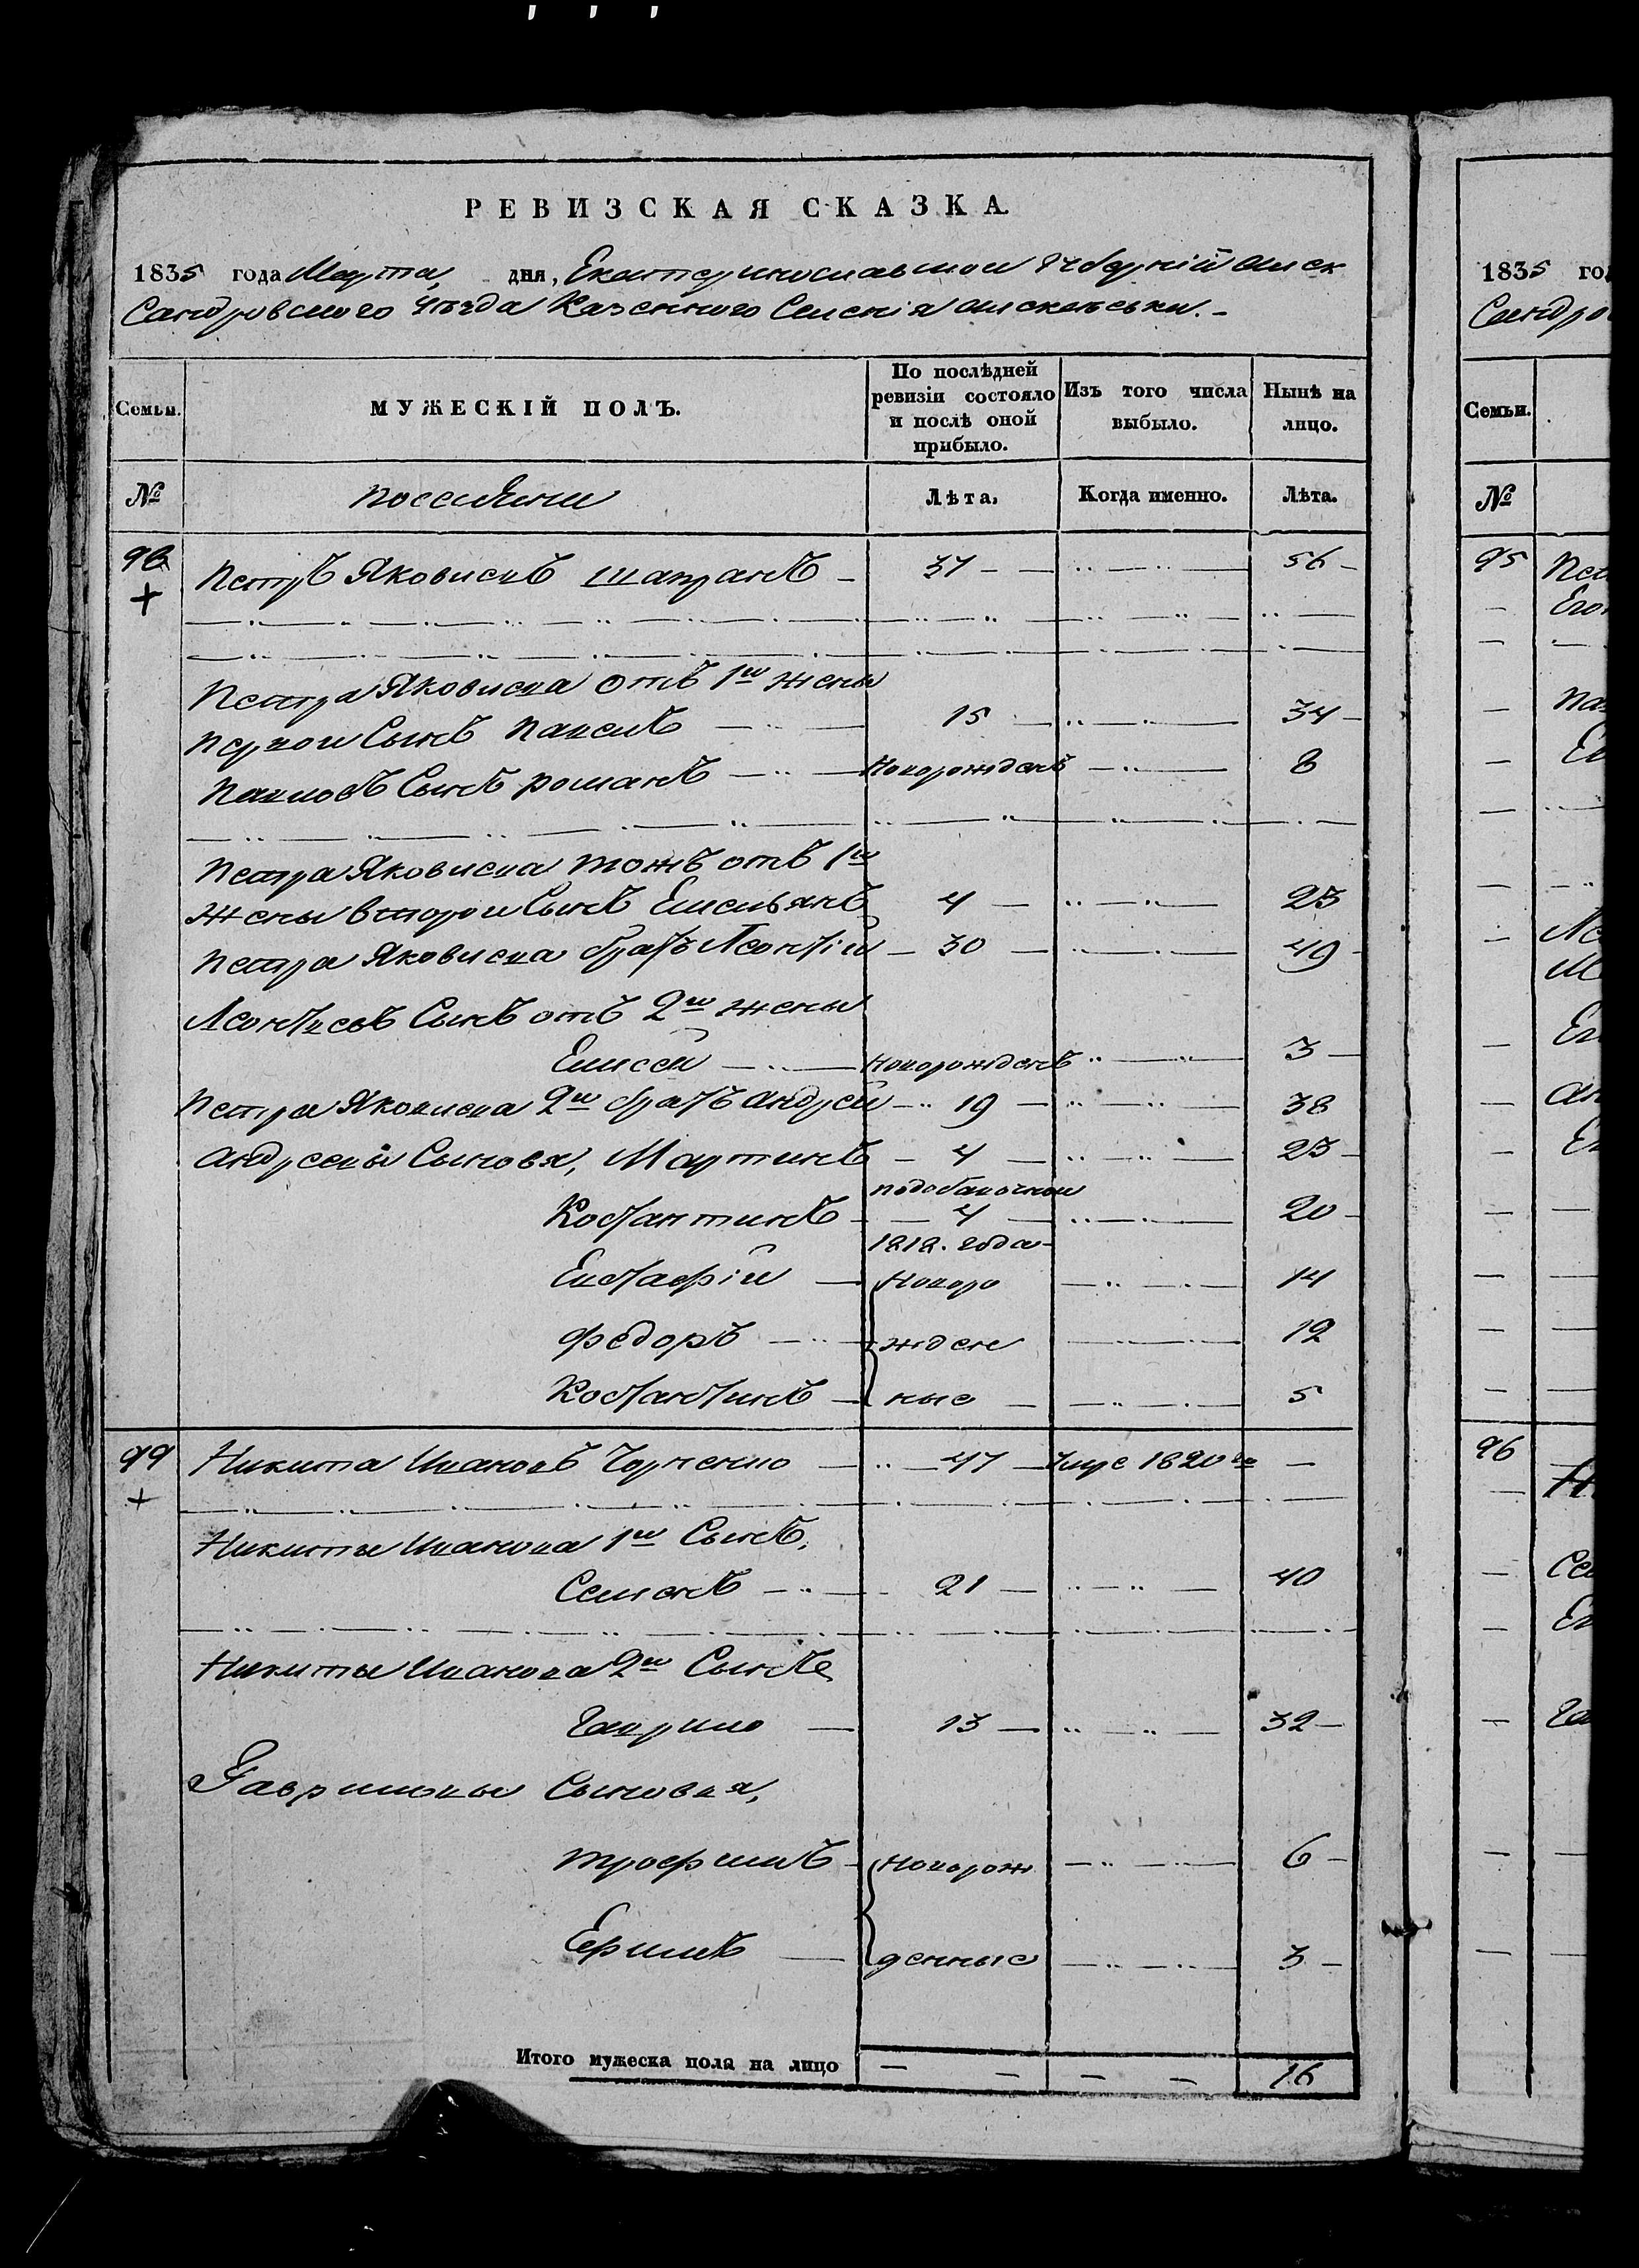 РЕВИЗСКАЯ СКАЗКА.
1835 года Марта, дня, Екатеринославской Губерній Алек
сандровского Уѣзда Казенного Селенія Алексѣевки. -
Семьи. МУЖЕСКІЙ ПОЛЪ. По послѣдней ревизіи состояло и послѣ оной прибыло. Изъ того числа выбыло. Нынѣ на лицо.
№ Лѣта. Когда именно. Лѣта.
98 Петръ Яковлевъ 37 56
+
Петра Яковлева отъ 1й жены
первой Сынъ Павелъ 15 34
Павловъ Сынъ романъ Новорожденъ 8
Петра Яковлева тожъ отъ 1й
жены второй Сынъ Емельянъ 4 23
Петра Яковлева братъ Леонтій 30 49
Леонтьевъ Сынъ отъ 2й жены
Елисей Новорожденъ 3
Петра Яковлева 2й братъ андрей 19 38
андреевы Сыновья, Мартинъ 4 23
Костантинъ 4 20
года
Евстафій Новоро 14
Федоръ жден 12
Костантинъ ные 5
99 Никита Ивановъ 47 Умре 1820го
+
Никиты Иванова 1й Сынъ,
Семенъ 21 40
Никиты Иванова 2й Сынъ
Гаврило 13 32
Гавриловы Сыновья,
трофимъ Новорож 6
Ефимъ денные 3
Итого мужеска пола на лицо 16
1835 го
Сандро
Семьи.
№
95 Пет
Его
96
Сем